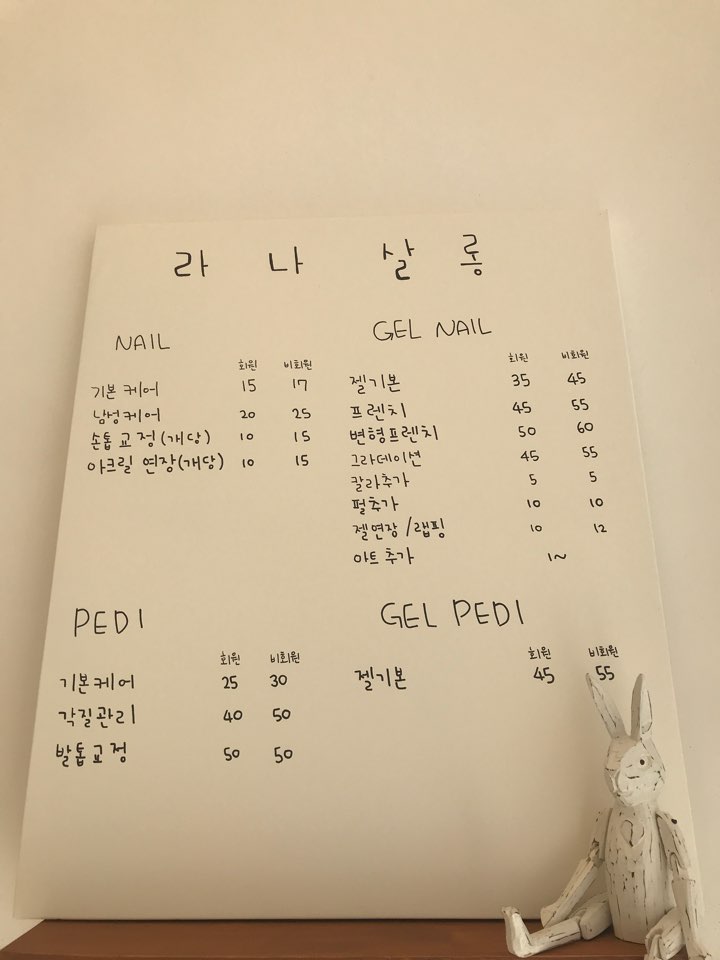 라 나 살 롱
NAIL
회원 비회원
기본 케어 15 17
남성케어 20 25
손톱 교정(개당) 10 15
아크릴 연장(개당) 10 15
GEL NAIL
회원 비회원
젤기본 35 45
프렌치 45 55
변형프렌치 50 60
그라데이션 45 55
칼라추가 5 5
펄추가 10 10
젤연장/랩핑 10 12
아트 추가 1~
PEDI
회원 비회원
기본케어 25 30
각질관리 40 50
발톱교정 50 50
GEL PEDI
회원 비회원
젤기본 45 55